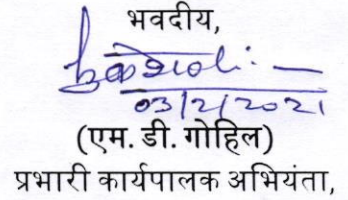 भवदीय,
03/2/2021
(एम. डी. गोहिल)
प्रभारी कार्यपालक अभियंता,